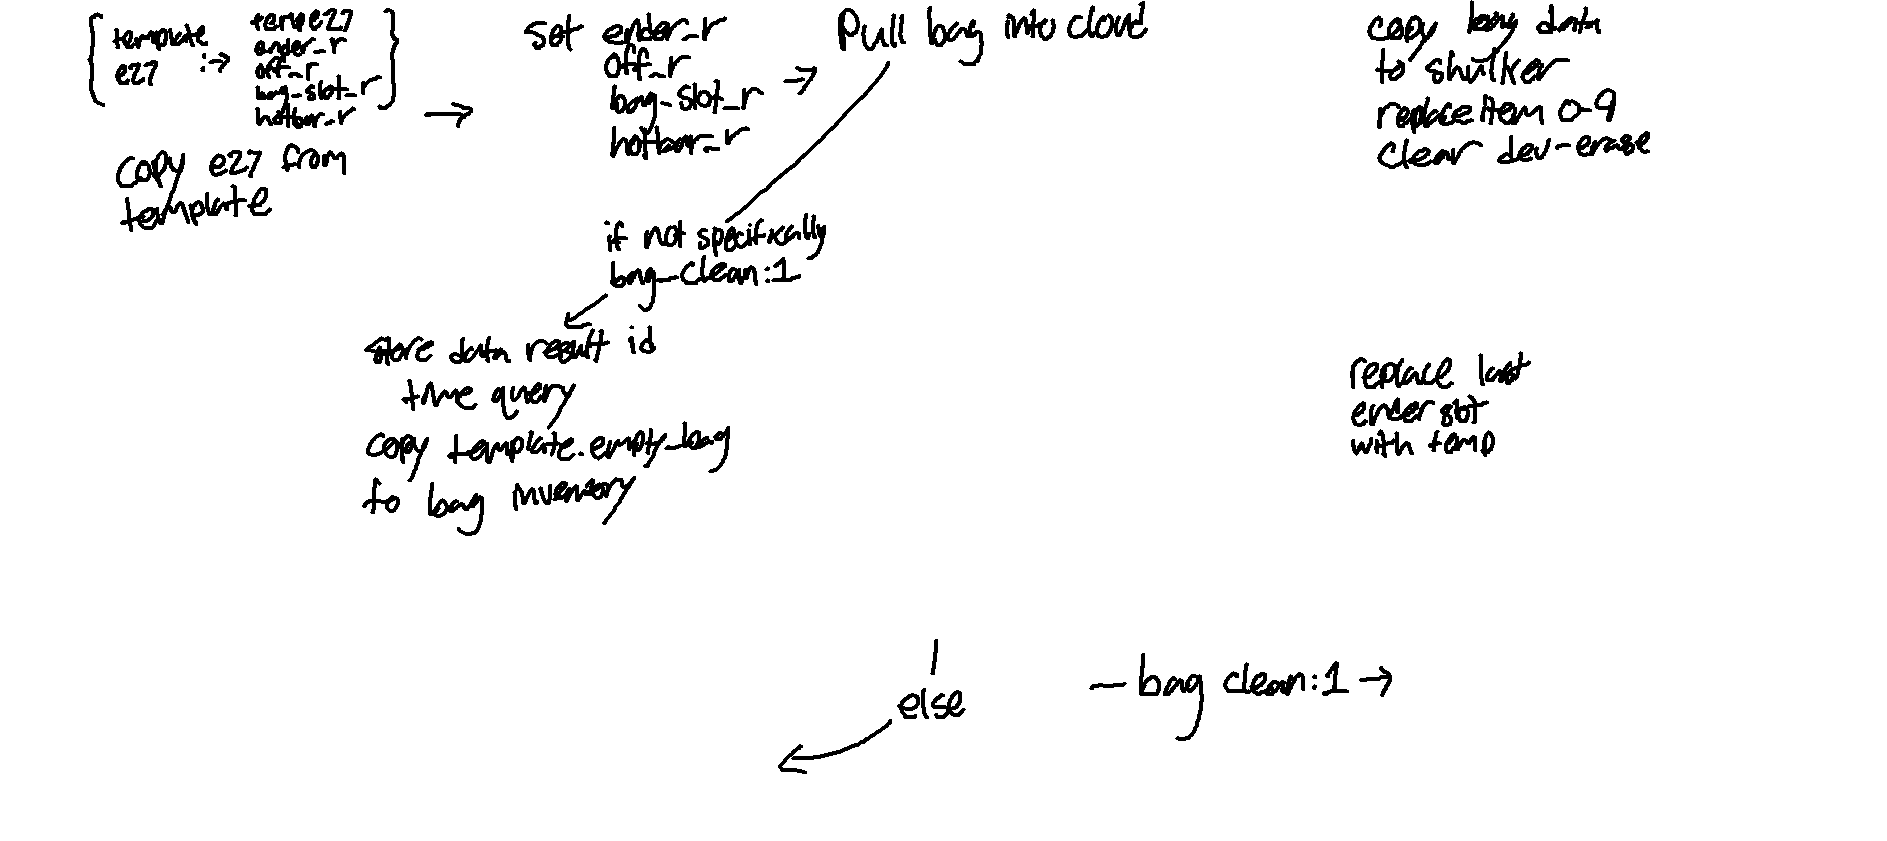 template
e27
:→
temp e27
ender_r
off_r
bag-slot_r
hotbar_r
copy e27 from
template
→
set ender_r
off_r
bag-slot_r
hotbar_r
→
Pull bag into cloud
if not specifically
bag_clean:1
store data result id
time query
copy template.empty_bag
to bag inventory
copy bag data
to shulker
replaceitem 0-9
clear dev-erase
replace last
ender slot
with temp
else
— bag clean:1 →